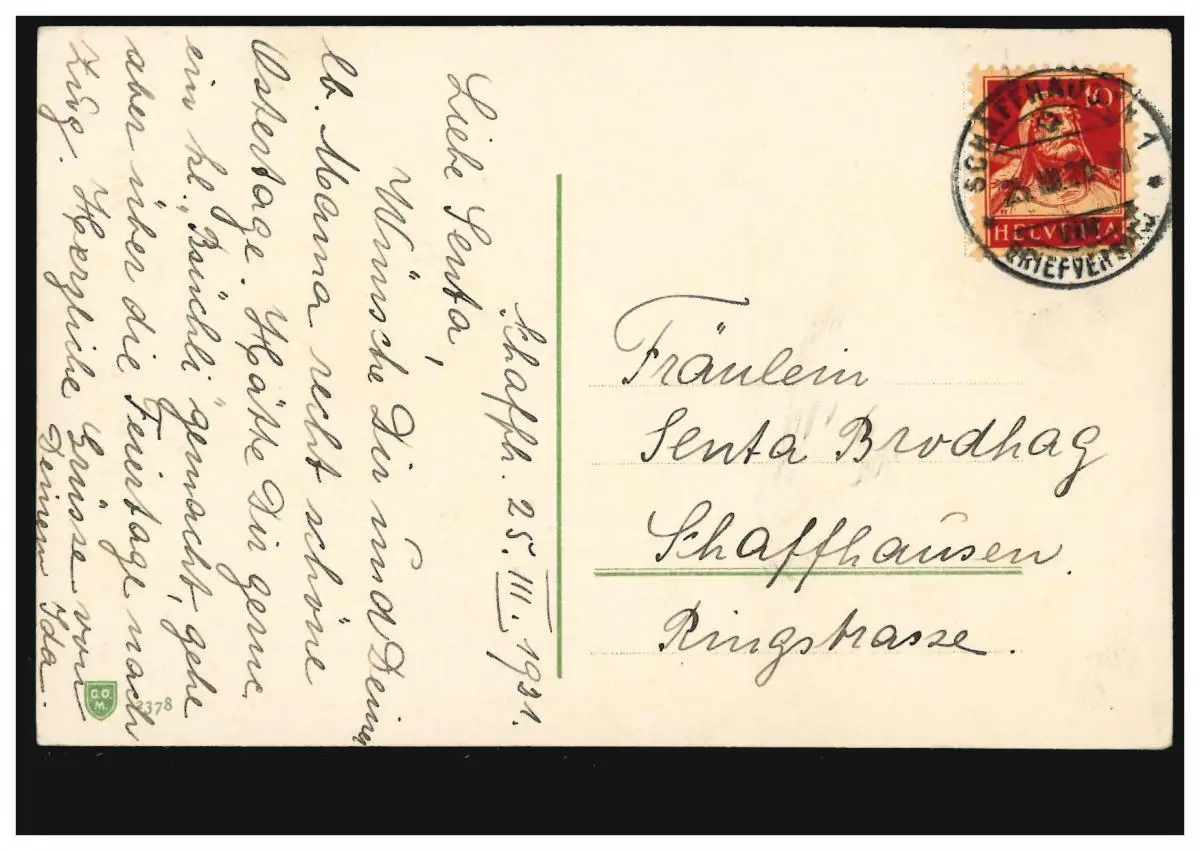 Schaffh. 25. III. 1921.
Liebe Senta,
Wünsche Dir und Deiner
lb. Mama recht schöne
Ostertage. Hätte Dir gerne
ein kl. „Bsüchli" gemacht, gehe
aber über die Feiertage nach
Zug. Herzliche Grüsse von
Deiner Ida.
G.O.
M.
2378
10
HELVETIA
SCHAFFHAUSEN 1
BRIEFVERSAND
Fräulein
Senta Brodhag
Schaffhausen.
Ringstrasse.